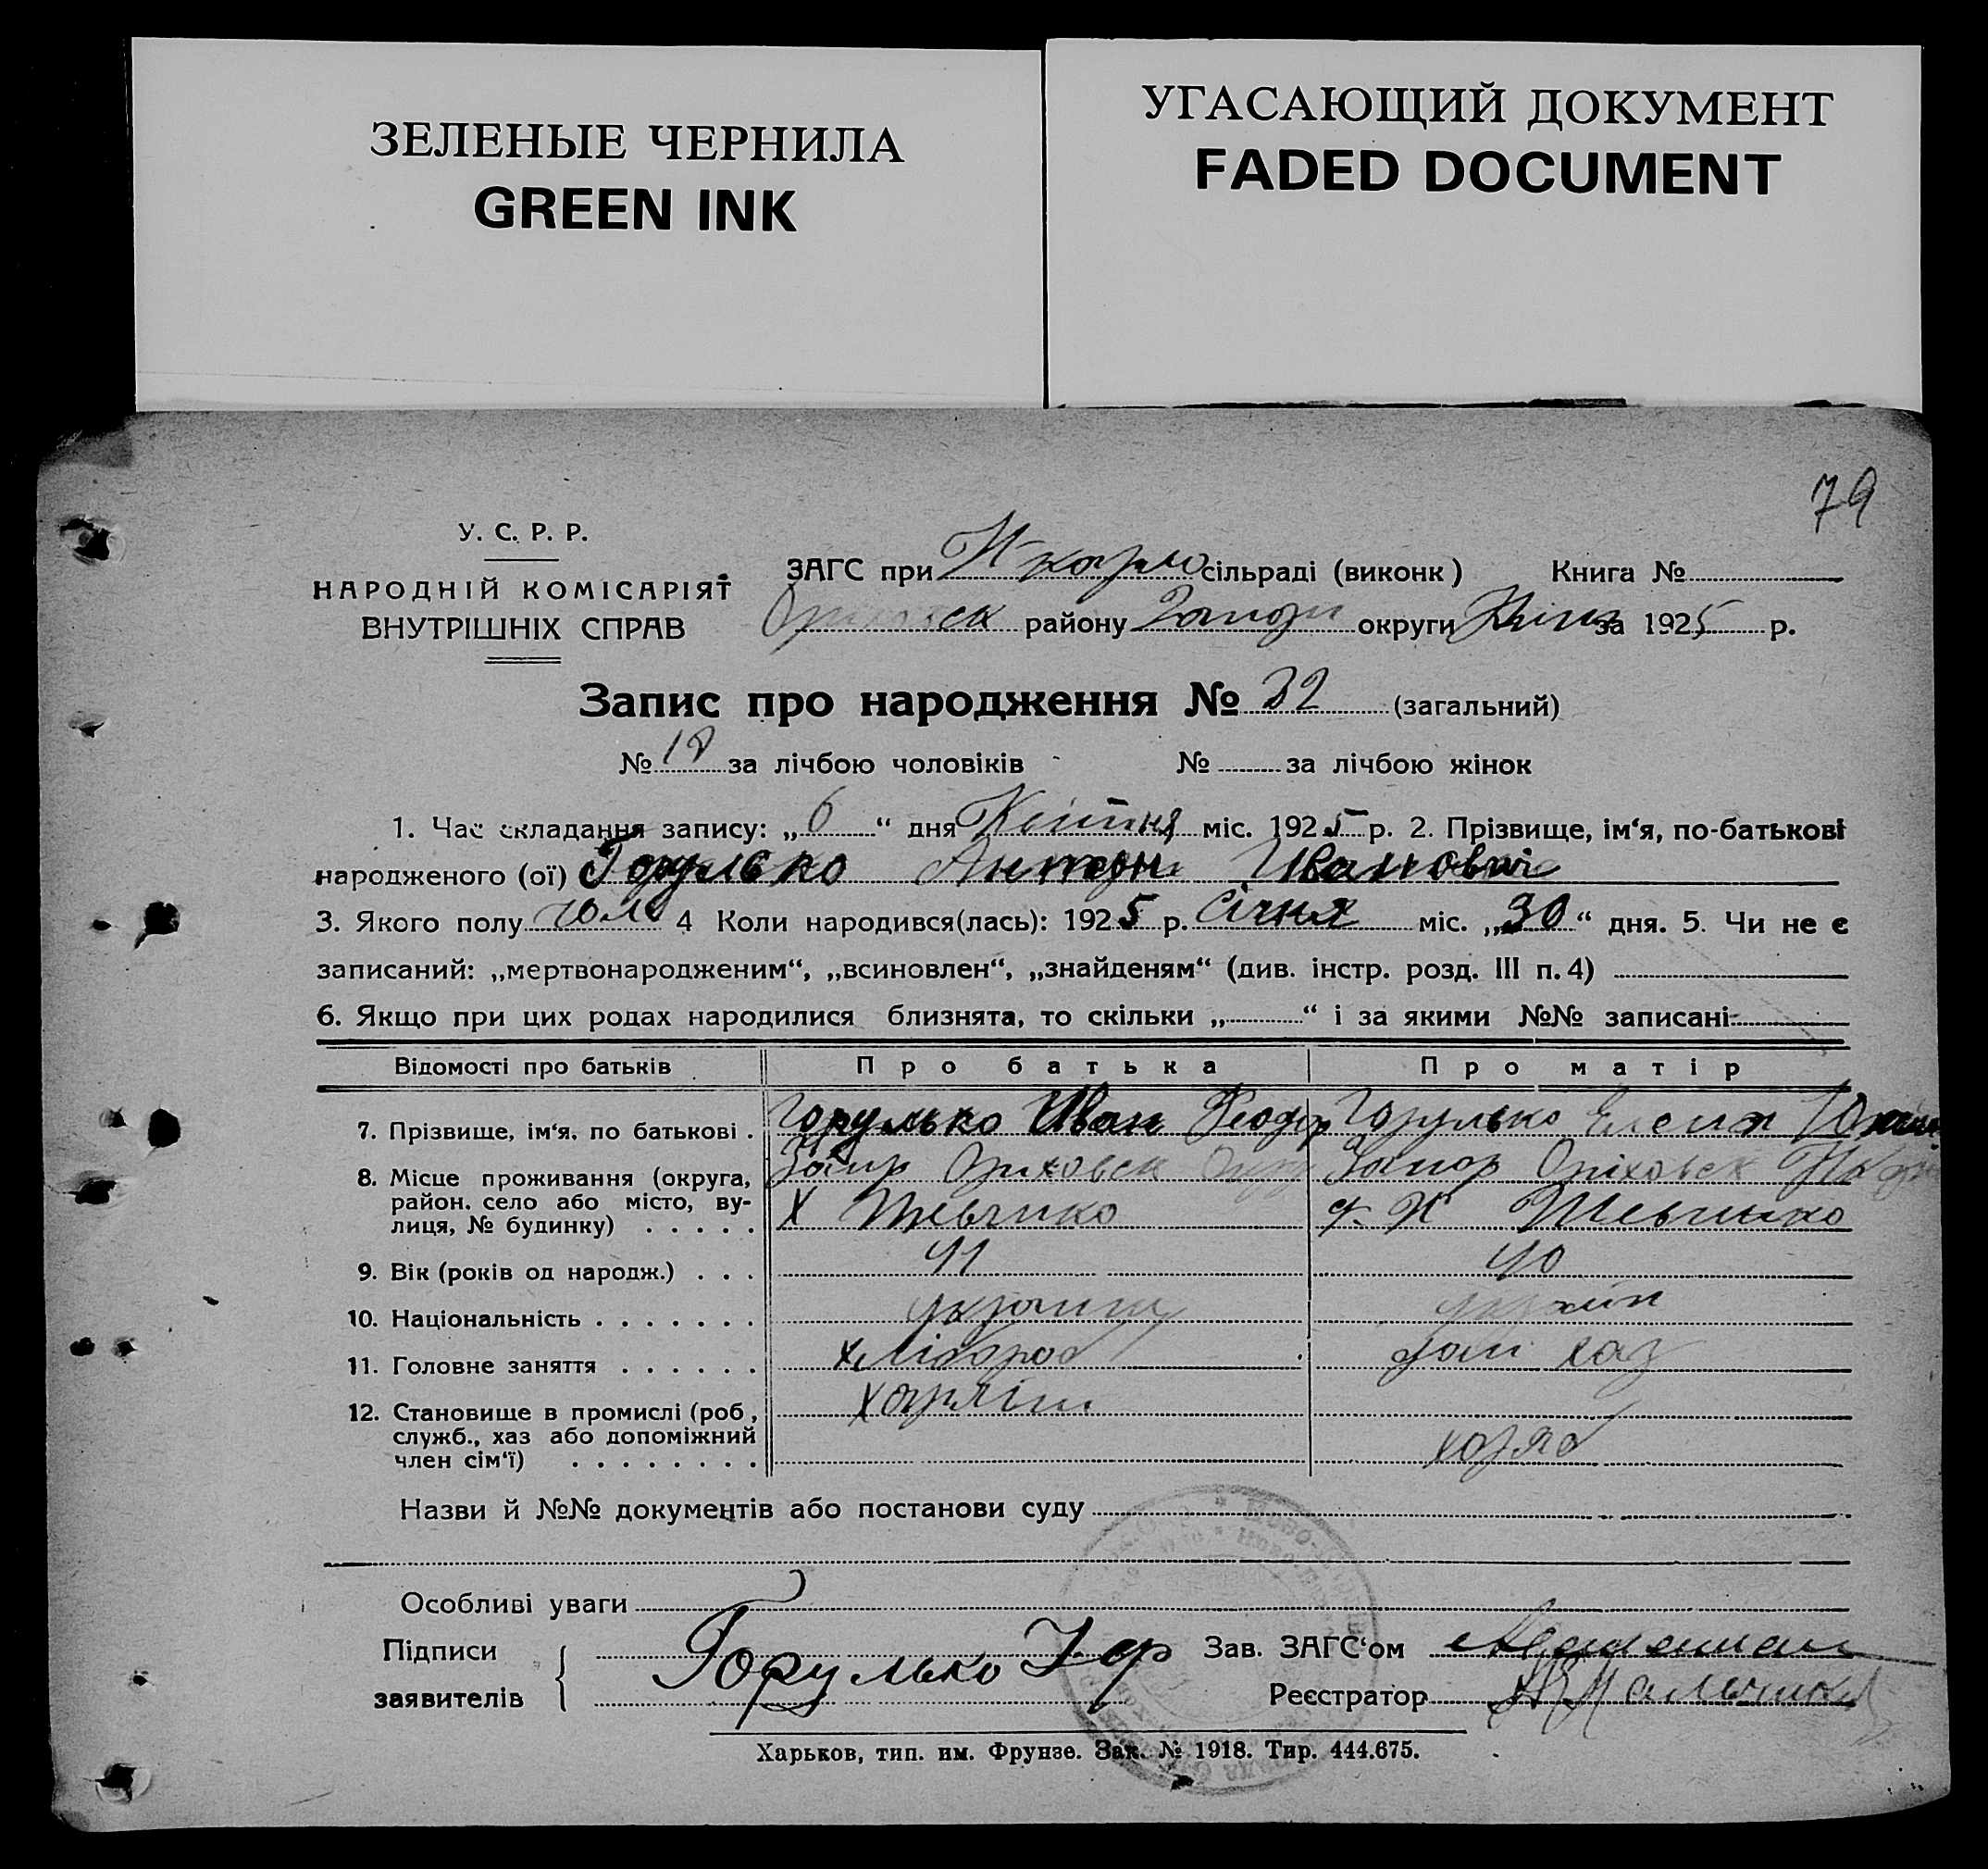 ЗЕЛЕНЫЕ ЧЕРНИЛА
GREEN INK
УГАСАЮЩИЙ ДОКУМЕНТ
FADED DOCUMENT
79
У. С. Р. Р.
НАРОДНІЙ КОМІСАРІЯТ
ВНУТРІШНІХ СПРАВ
ЗАГС при Н карло сільраді (виконк) Книга №
району Запор округи за 1925 р.
Запис про народження № 32 (загальний)
№ 18 за лічбою чоловіків № за лічбою жінок
1. Час складання запису: „6“ дня Квітня міс. 1925 р. 2. Прізвище, ім‘я, по-батькові
народженого (ої) Горулько Антон Иванович
3. Якого полу чол 4 Коли народився(лась): 1925 р. Січня міс. „30“ дня. 5. Чи не є
записаний: „мертвонародженим“, „всиновлен“, „знайденям“ (див. інстр. розд. III п. 4)
6. Якщо при цих родах народилися близнята, то скільки „ “ і за якими №№ записані
Відомості про батьків Про батька Про матір
7. Прізвище, ім‘я, по батькові . Горулько Иван Феодор Горулько Елена
8. Місце проживання (округа, Запр Ориховск Запор Оріховск
район. село або місто, ву- Х Шевчико Х Шевчико
лиця, № будинку) . . . . .
9. Вік (років од народж.) . . . 41 40
10. Національність . . . . . . . украинц украін
11. Головне заняття . . . . . . хлібороб дом хаз
12. Становище в промислі (роб,
служб., хаз або допоміжний
член сім‘ї) . . . . . . . .
Назви й №№ документів або постанови суду
Особливі уваги
Підписи
заявителів
Горулько І Ф
Зав. ЗАГС‘ом
Реєстратор
Харьков, тип. им. Фрунзе. Зак. № 1918. Тир. 444.675.